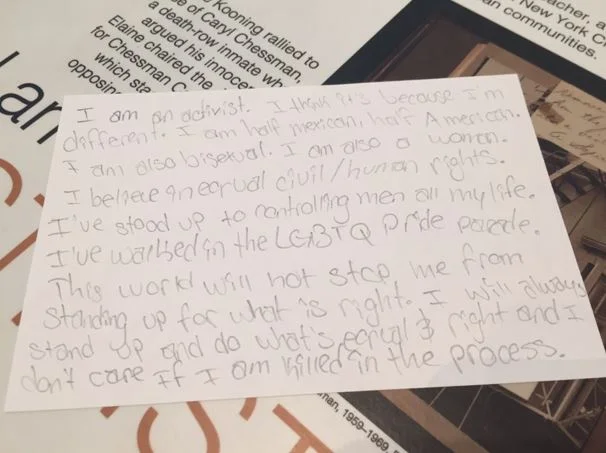 Kooning rallied to
e of Caryl Chessman,
a death-row inmate wh
argued his innocen
Elaine chaired the
for Chessman C
which sta
opposin
acher, a
New York C
an communities.
I am an activist. I think it's because I'm
different. I am half mexican, half American.
I am also bisexual. I am also a woman.
I believe in equal civil/human rights.
I've stood up to controlling men all my life.
I've walked in the LGBTQ pride parade.
This world will not stop me from
standing up for what is right. I will always
stand up and do what's equal & right and I
don't care if I am killed in the process.
man, 1959–1969